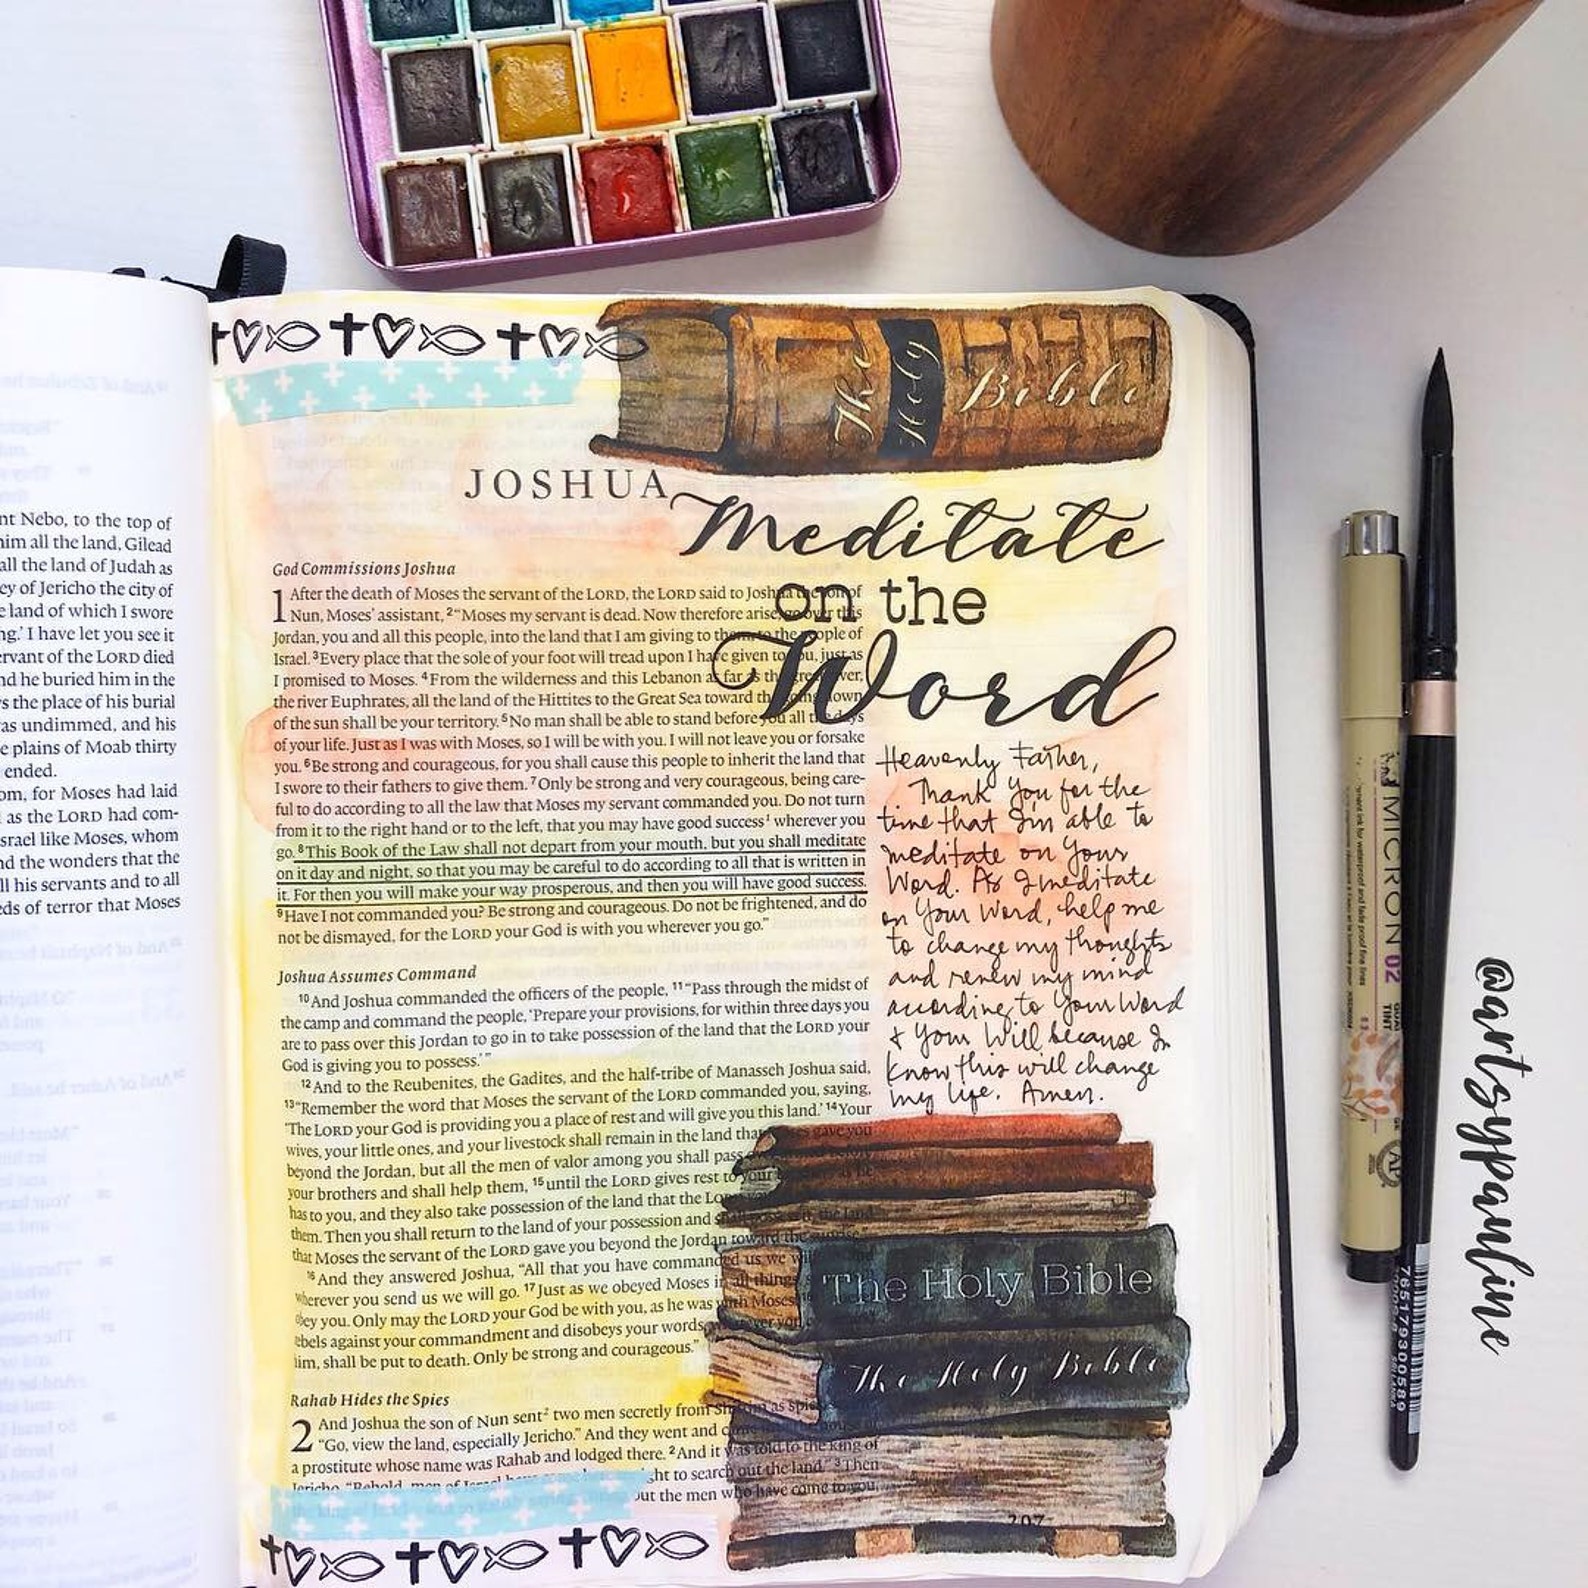 The Holy Bible
JOSHUA
Meditate
on the
Word
nt Nebo, to the top of
him all the land, Gilead
all the land of Judah as
ey of Jericho the city of
e land of which I swore
ng.' I have let you see it
ervant of the LORD died
nd he buried him in the
s the place of his burial
as undimmed, and his
e plains of Moab thirty
ended.
om, for Moses had laid
as the LORD had com-
srael like Moses, whom
nd the wonders that the
ll his servants and to all
eds of terror that Moses
God Commissions Joshua
1 After the death of Moses the servant of the LORD, the LORD said to Joshua the son of
Nun, Moses' assistant, 2 “Moses my servant is dead. Now therefore arise, go over this
Jordan, you and all this people, into the land that I am giving to them, to the people of
Israel. 3 Every place that the sole of your foot will tread upon I have given to you, just as
I promised to Moses. 4 From the wilderness and this Lebanon as far as the great river,
the river Euphrates, all the land of the Hittites to the Great Sea toward the going down
of the sun shall be your territory. 5 No man shall be able to stand before you all the days
of your life. Just as I was with Moses, so I will be with you. I will not leave you or forsake
you. 6 Be strong and courageous, for you shall cause this people to inherit the land that
I swore to their fathers to give them. 7 Only be strong and very courageous, being care-
ful to do according to all the law that Moses my servant commanded you. Do not turn
from it to the right hand or to the left, that you may have good success1 wherever you
go. 8 This Book of the Law shall not depart from your mouth, but you shall meditate
on it day and night, so that you may be careful to do according to all that is written in
it. For then you will make your way prosperous, and then you will have good success.
9 Have I not commanded you? Be strong and courageous. Do not be frightened, and do
not be dismayed, for the LORD your God is with you wherever you go.”
Joshua Assumes Command
10 And Joshua commanded the officers of the people, 11 “Pass through the midst of
the camp and command the people, ‘Prepare your provisions, for within three days you
are to pass over this Jordan to go in to take possession of the land that the LORD your
God is giving you to possess.’”
12 And to the Reubenites, the Gadites, and the half-tribe of Manasseh Joshua said,
13 “Remember the word that Moses the servant of the LORD commanded you, saying,
‘The LORD your God is providing you a place of rest and will give you this land.’ 14 Your
wives, your little ones, and your livestock shall remain in the land that Moses gave you
beyond the Jordan, but all the men of valor among you shall pass
your brothers and shall help them, 15 until the LORD gives rest to your
has to you, and they also take possession of the land that the LORD
them. Then you shall return to the land of your possession and shall possess it, the land
that Moses the servant of the LORD gave you beyond the Jordan toward the sunrise.”
16 And they answered Joshua, “All that you have commanded us we will
wherever you send us we will go. 17 Just as we obeyed Moses in all things,
obey you. Only may the LORD your God be with you, as he was with Moses!
ebels against your commandment and disobeys your words, whatever you
him, shall be put to death. Only be strong and courageous.”
Rahab Hides the Spies
2 And Joshua the son of Nun sent2 two men secretly from Shittim as spies
“Go, view the land, especially Jericho.” And they went and came house of
a prostitute whose name was Rahab and lodged there. 2 And it was told to the king of
Jericho, “Behold, men of Israel ght to search out the land.” 3 Then
out the men who have come to you,
Heavenly Father,
Thank You for the
time that I'm able to
meditate on Your
Word. As I meditate
on Your Word, help me
to change my thoughts
and renew my mind
according to Your Word
& Your Will because I
know this will change
my life. Amen.
The Holy Bible
The Holy Bible
207
MICRON 02
7651793005​89
@artsypamline